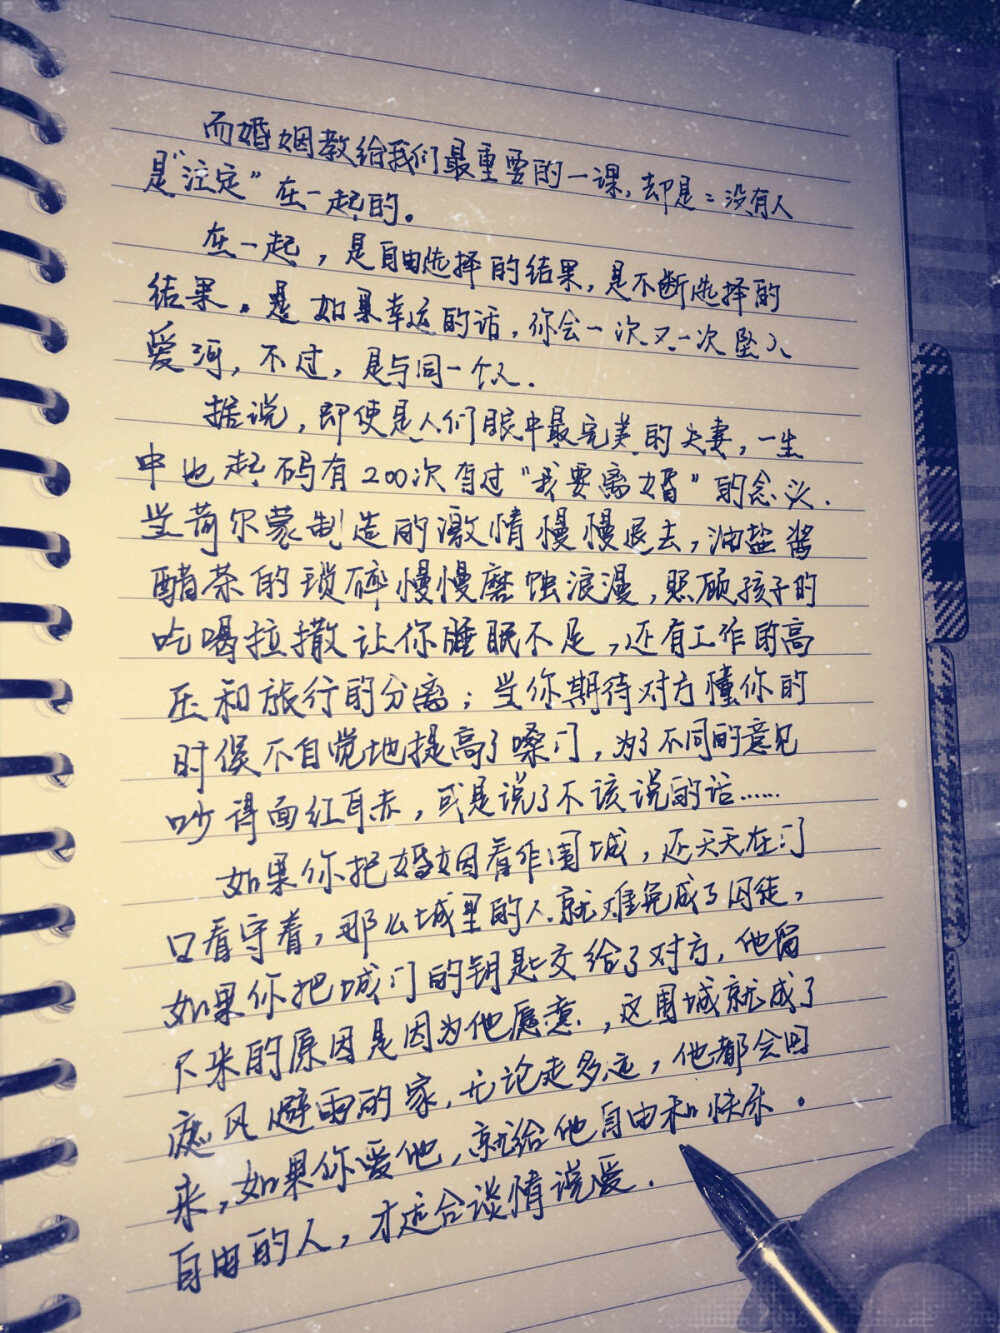 而婚姻教给我们最重要的一课,却是:没有人
是“注定”在一起的。
在一起,是自由选择的结果,是不断选择的
结果。是如果幸运的话,你会一次又一次坠入
爱河,不过,是与同一个人.
据说,即使是人们眼中最完美的夫妻,一生
中也起码有200次有过“我要离婚”的念头.
当荷尔蒙制造的激情慢慢退去,油盐酱
醋茶的琐碎慢慢磨蚀浪漫,照顾孩子的
吃喝拉撒让你睡眠不足,还有工作的高
压和旅行的分离;当你期待对方懂你的
时候不自觉地提高了嗓门,为了不同的意见
吵得面红耳赤,或是说了不该说的话……
如果你把婚姻看作围城,还天天在门
口看守着,那么城里的人就难免成了囚徒,
如果你把城门的钥匙交给了对方,他留
下来的原因是因为他愿意,这围城就成了
遮风避雨的家,无论走多远,他都会回
来,如果你爱他,就给他自由和快乐.
自由的人,才适合谈情说爱.